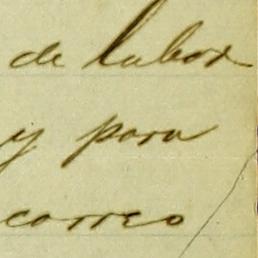 de labor
y para
correo